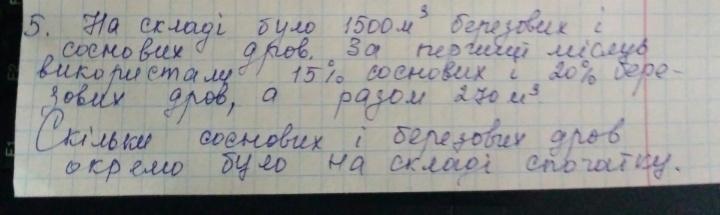 5. На складі було 1500м³ березових і
соснових дров. За перший місяць
використали 15% соснових і 20% бере-
зових дров, а разом 270м³
Скільки соснових і березових дров
окремо було на складі спочатку.